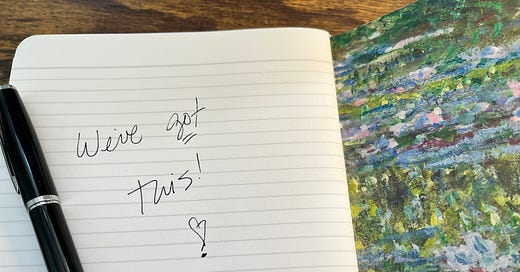 We've got
this!
♡